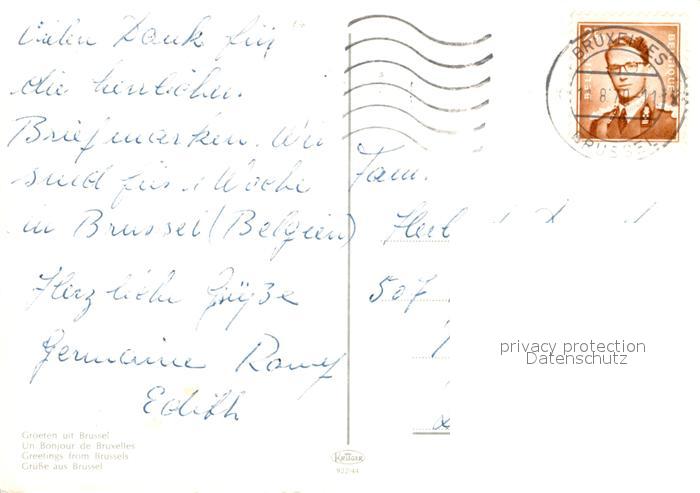 Vielen Dank für
die herrlichen
Briefmarken. Wir
sind für 1 Woche
in Brussel (Belgien)
Herzliche Grüße
Germaine
Edith
Groeten uit Brussel
Un Bonjour de Bruxelles
Greetings from Brussels
Grüße aus Brüssel
BRUXELLES
BRUSSEL
BELGIQUE
Fam.
507
privacy protection
Datenschutz
KRÜGER
922/44